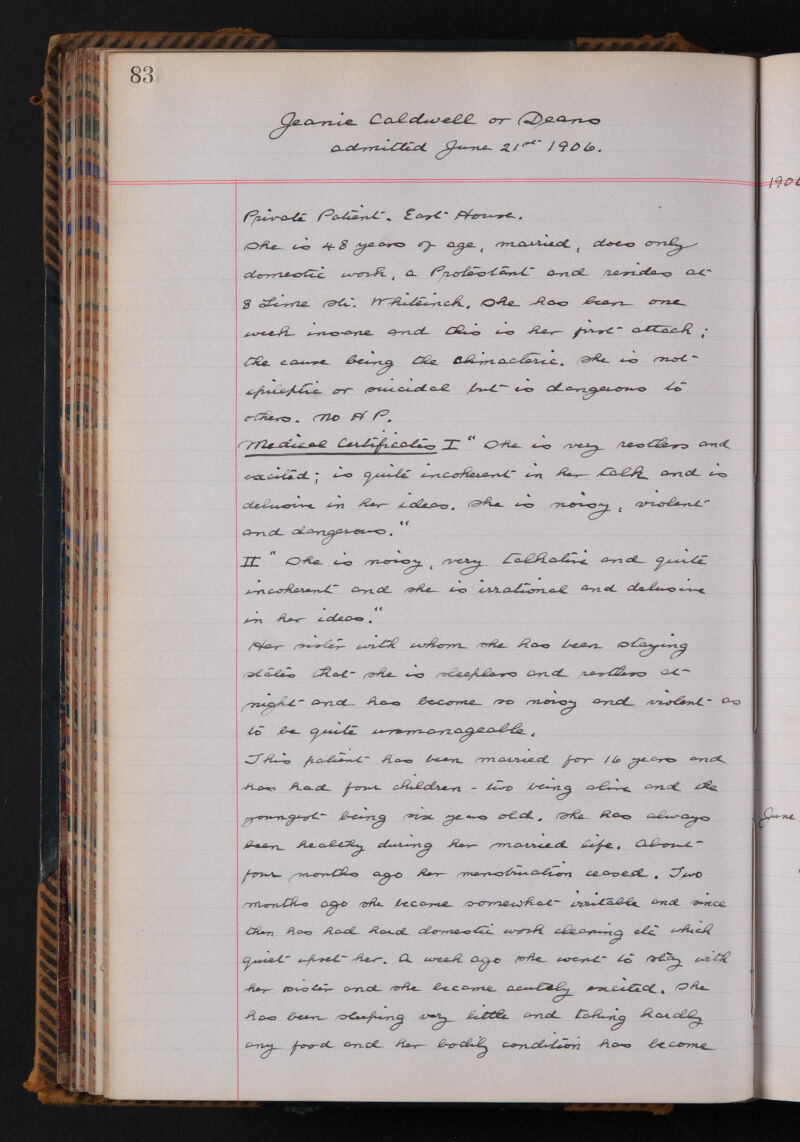 83
Jeanie Caldwell or Deans
admitted June 21st 1906.
Private Patient. East House.
She is 48 years of age, married, does only
domestic work, a Protestant and resides at
8 Lime St. Whiteinch. She has been one
week insane and this is her first attack;
the cause being the climacteric. She is not
epileptic or suicidal but is dangerous to
others. No H P.
Medical Certificates I "She is very restless and
excited; is quite incoherent in her talk and is
delusive in her ideas. She is noisy, violent
and dangerous."
II "She is noisy, very talkative and quite
incoherent and she is irrational and delusive
in her ideas."
Her sister with whom she has been staying
states that she is sleepless and restless at
night and has become so noisy and violent as
to be quite unmanageable.
This patient has been married for 16 years and
has had four children - two being alive and the
youngest being six years old. She has always
been healthy during her married life. About
four months ago her menstruation ceased. Two
months ago she became somewhat irritable and since
then has had hard domestic work cleaning etc which
quiet upset her. A week ago she went to stay with
her sister and she became acutely excited. She
has been sleeping very little and taking hardly
any food and her bodily condition has become
1906
June